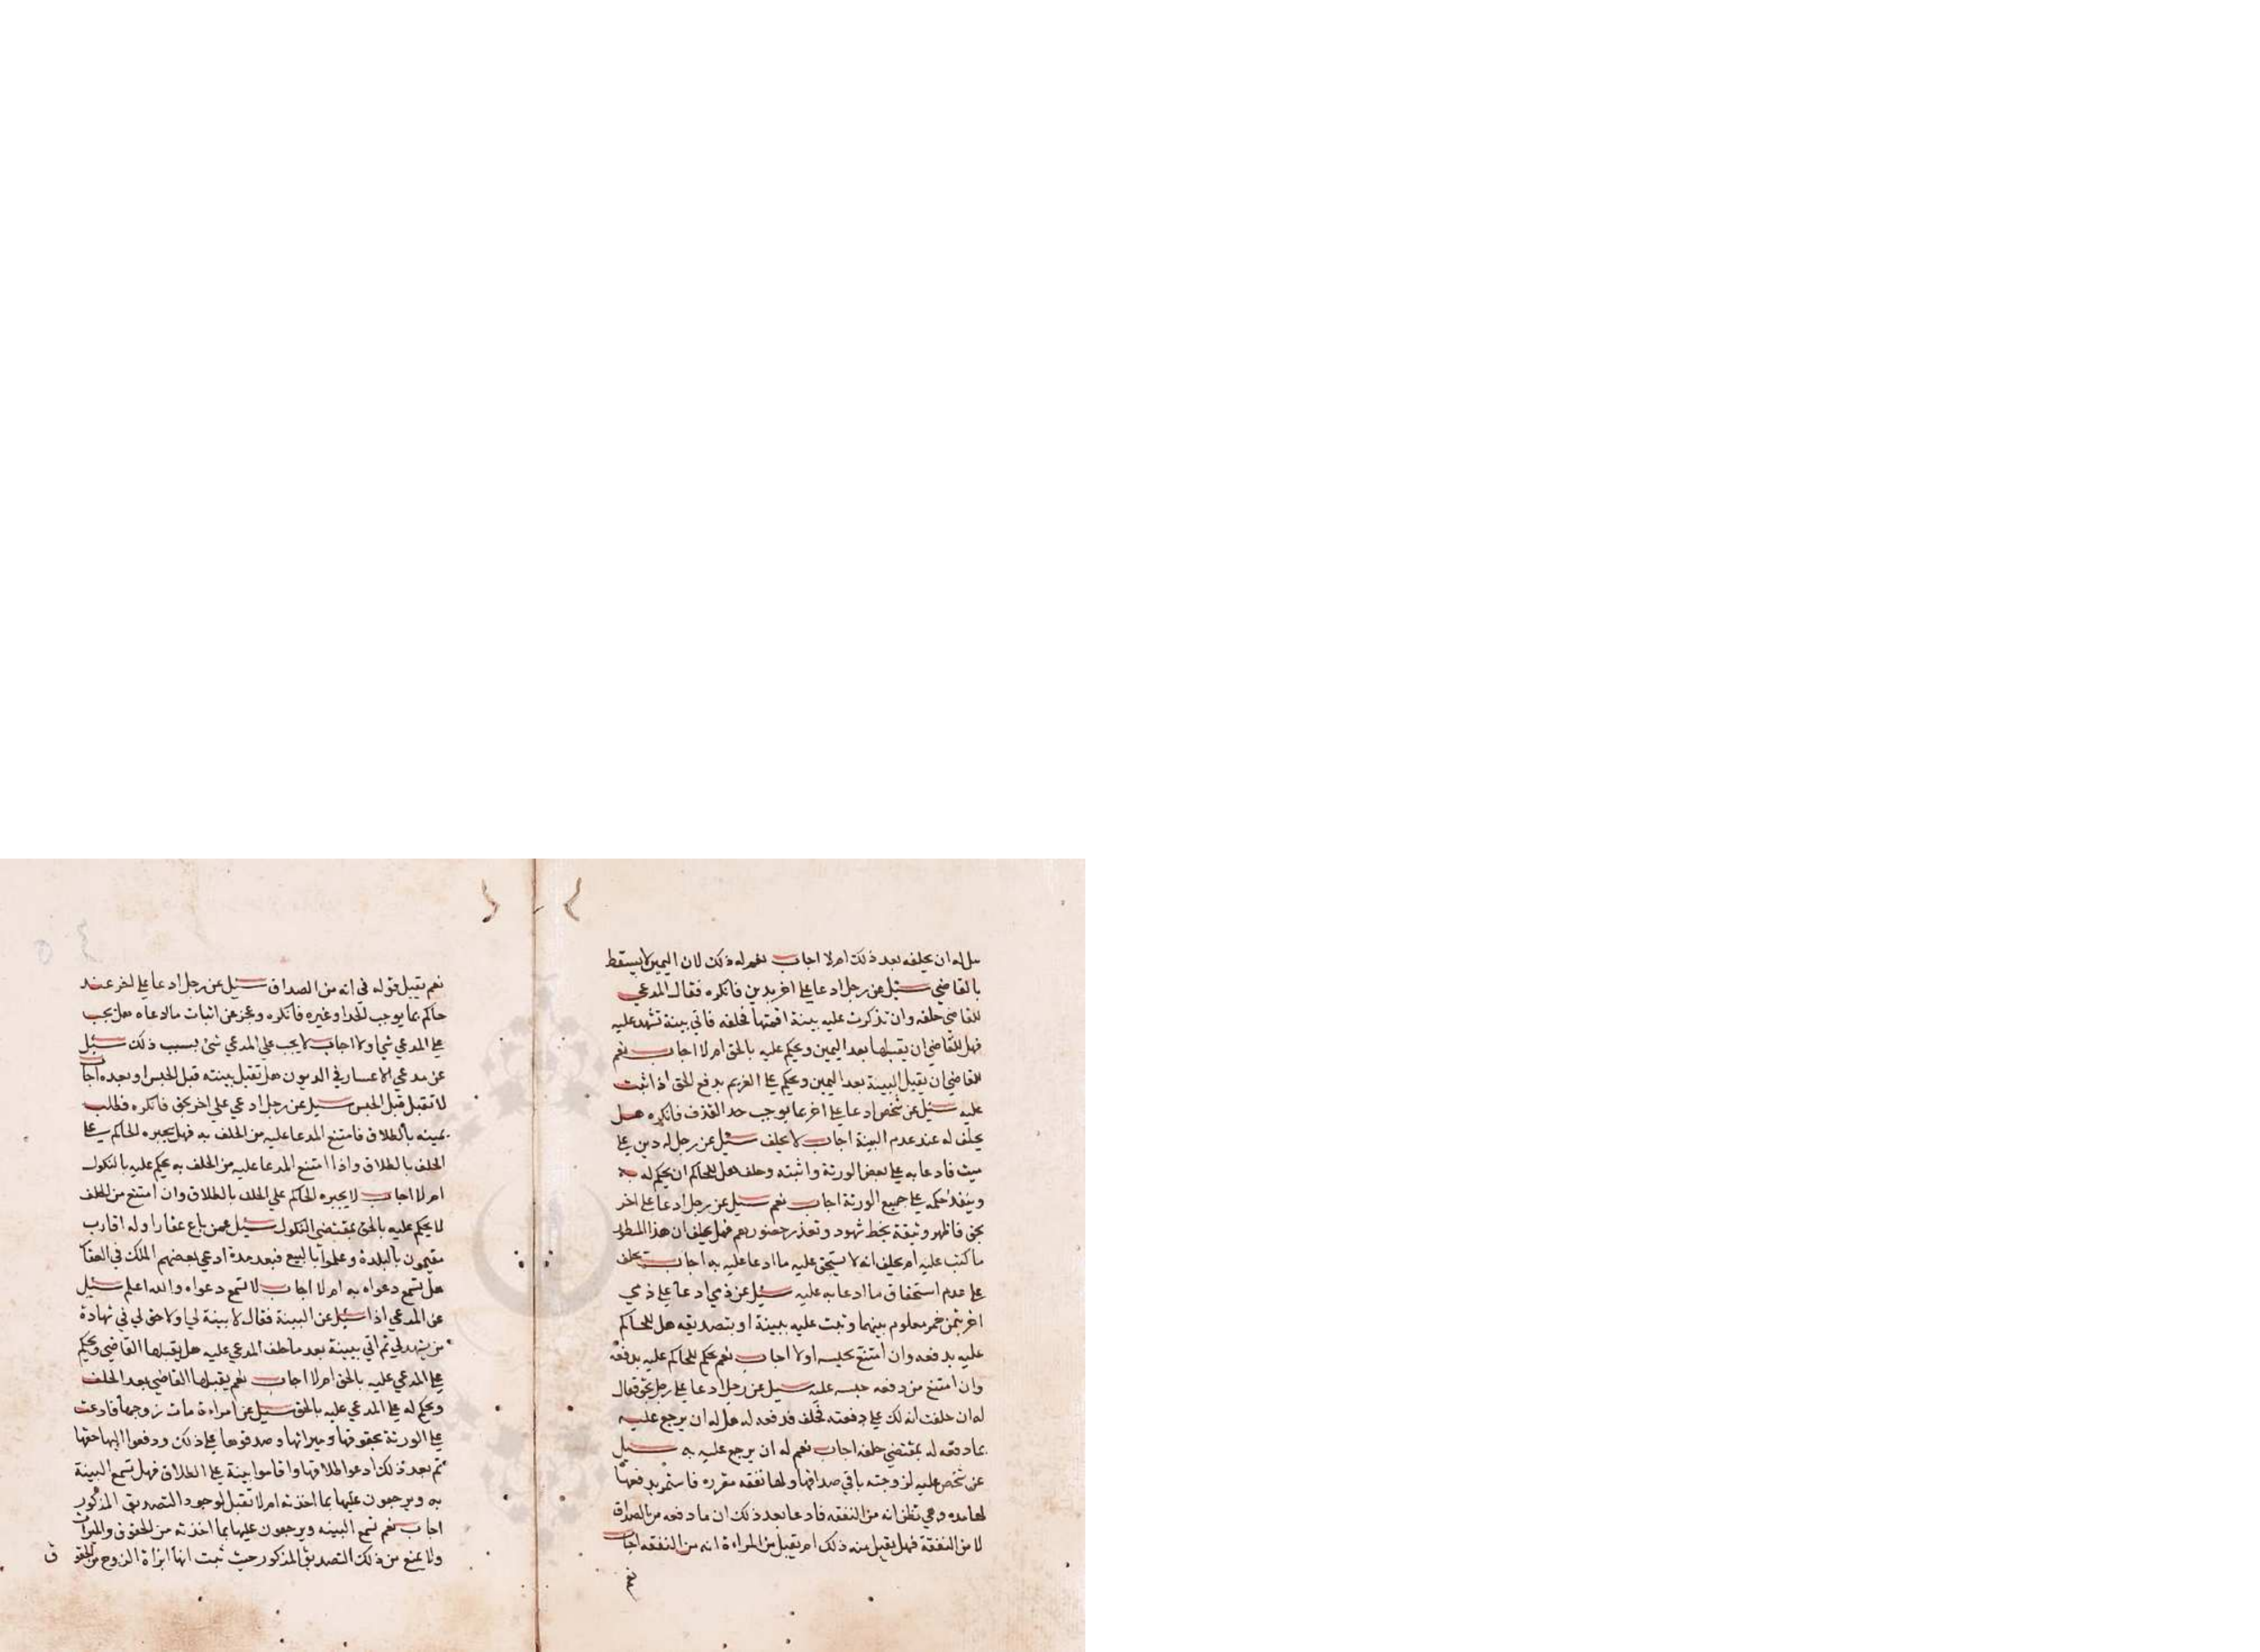 هل له ان يحلفه بعد ذلك ام لا اجاب نعم له ذلك لان اليمين لا يسقط
بالقاضي سئيل عن رجل ادعا علي اخر بدين فانكره فقال المدعي
للقاضي حلفه وان تذكرت عليه بينة اقمتها فحلفه فاتي ببينة تشهد عليه
فهل للقاضي ان يقبلها بعد اليمين ويحكم عليه بالحق ام لا اجاب نعم
للقاضي ان يقبل البينة بعد اليمين ويحكم علي الغريم بدفع الحق اذا ثبت
عليه سئيل عن شخص ادعا علي اخر بما يوجب حد القذف فانكره هل
يحلف له عند عدم البينة اجاب لا يحلف سئيل عن رجل له دين علي
ميت فادعا به علي بعض الورثة واثبته وحلف هل للحاكم ان يحكم له به
وينفذ حكمه علي جميع الورثة اجاب نعم سئيل عن رجل ادعا علي اخر
بحق فاظهر وثيقة بخط شهود وتعذر حضورهم فهل يحلف ان هذا المسطور
ما كتب عليه ام يحلف انه لا يستحق عليه ما ادعا عليه به اجاب يحلف
علي عدم استحقاق ما ادعا به عليه سئيل عن ذمي ادعا علي ذمي
اخر بثمن خمر معلوم بينهما وثبت عليه ببينة او بتصديقه هل للحاكم
عليه بدفعه وان امتنع يحبسه او لا اجاب نعم يحكم للحاكم عليه بدفعه
وان امتنع من دفعه حبسه عليه سئيل عن رجل ادعا علي رجل بحق فقال
له ان حلفت انه لك علي دفعته فحلف فدفعه له هل له ان يرجع عليه
بما دفعه له بمقتضي حلفه اجاب نعم له ان يرجع عليه به سئيل
عن شخص عليه لزوجته باقي صداقها ولها نفقه مقرره فاستمر بدفعها
لها مده وهي تظن انه من النفقه فادعا بعد ذلك ان ما دفعه من الصداق
لا من النفقة فهل يقبل منه ذلك ام يقبل من المراءة انه من النفقه اجاب
نعم
نعم يقبل قوله في انه من الصداق سئيل عن رجل ادعا علي اخر عند
حاكم بما يوجب الحد او غيره فانكره وعجز عن اثبات ما ادعاه هل يجب
علي المدعي شيا ولا اجاب لا يجب علي المدعي شئ بسبب ذلك سئيل
عن مدعي الاعسار في الديون هل تقبل بينته قبل الحبس او بعده اجاب
لا تقبل قبل الحبس سئيل عن رجل ادعي علي اخر بحق فانكره فطلب
يمينه بالطلاق فامتنع المدعا عليه من الحلف به فهل يجبره الحاكم علي
الحلف بالطلاق واذا امتنع المدعا عليه من الحلف به يحكم عليه بالنكول
ام لا اجاب لا يجبره الحاكم علي الحلف بالطلاق وان امتنع من الحلف
لا يحكم عليه بالحق بمقتضي النكول سئيل عمن باع عقارا وله اقارب
مقيمون بالبلدة وعلموا بالبيع فبعد مدة ادعي بعضهم الملك في العقار
هل تسمع دعواه به ام لا اجاب لا تسمع دعواه والله اعلم سئيل
عن المدعي اذا سئيل عن البينة فقال لا بينة لي ولا حق لي في شهادة
من يشهد لي ثم اتي ببينة بعد ما حلف المدعي عليه هل يقبلها القاضي ويحكم
علي المدعي عليه بالحق ام لا اجاب نعم يقبلها القاضي بعد الحلف
ويحكم له علي المدعي عليه بالحق سئيل عن امراءة مات زوجها فادعت
علي الورثة بحقوقها وميراثها وصدقوها علي ذلك ودفعوا اليها حقها
ثم بعد ذلك ادعوا طلاقها واقاموا بينة علي الطلاق فهل تسمع البينة
به ويرجعون عليها بما اخذته ام لا تقبل لوجود التصديق المذكور
اجاب نعم تسمع البينه ويرجعون عليها بما اخذته من الحقوق والميراث
ولا يمنع من ذلك التصديق المذكور حيث ثبت انها ابراة الزوج من الحقو ق